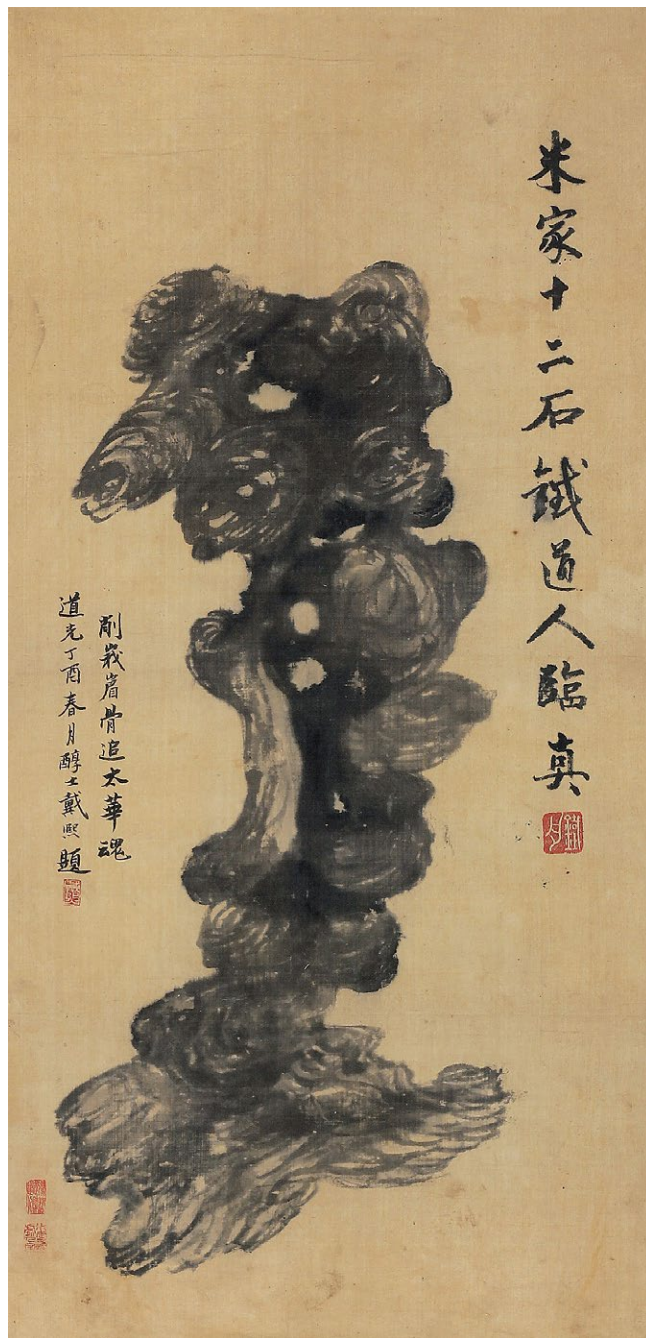 米家十二石鐵道人臨真
削峩眉骨追太華魂
道光丁酉春月醇士戴熙題